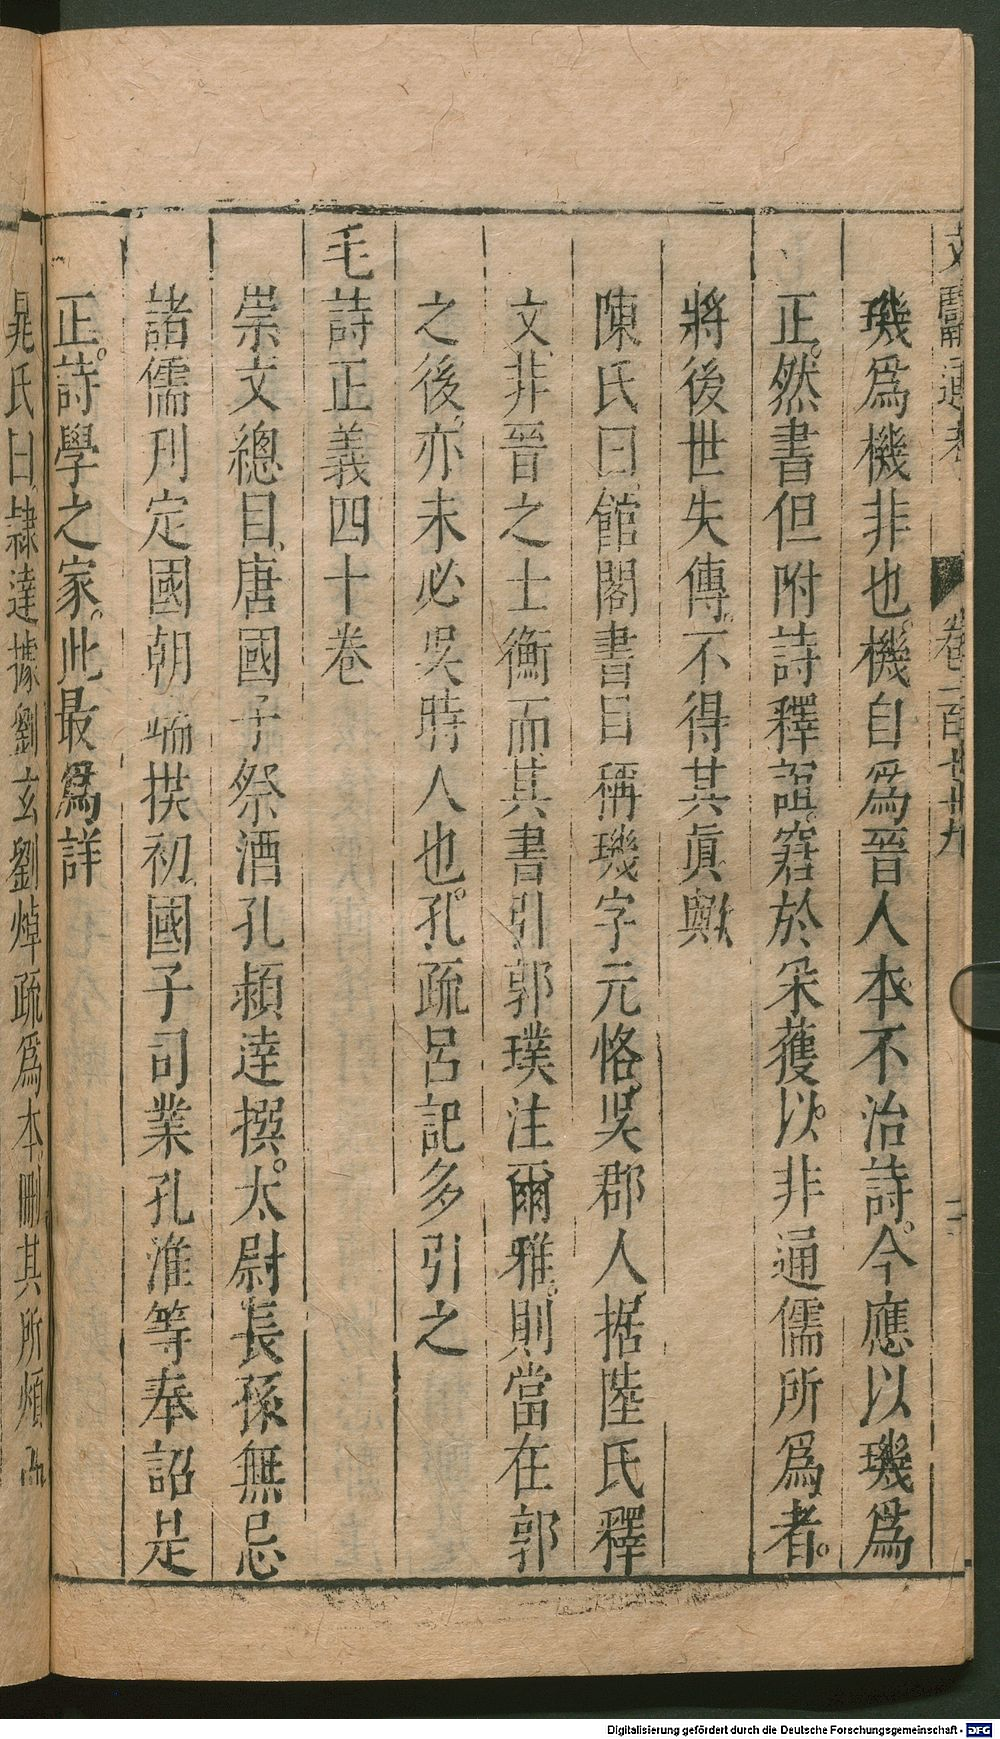 文獻通考 卷一百七十九 二
璣爲機非也機自爲晉人本不治詩今應以璣爲
正然書但附詩釋誼窘於采獲似非通儒所爲者
將後世失傳不得其眞歟
陳氏曰館閣書目稱璣字元恪吳郡人据陸氏釋
文非晉之士衡而其書引郭璞注爾雅則當在郭
之後亦未必吳時人也孔疏呂記多引之
毛詩正義四十卷
崇文總目唐國子祭酒孔穎達撰太尉長孫無忌
諸儒刊定國朝端拱初國子司業孔淮等奉詔是
正詩學之家此最爲詳
晁氏曰隸達據劉玄劉焯疏爲本刪其所煩
Digitalisierung gefördert durch die Deutsche Forschungsgemeinschaft - DFG